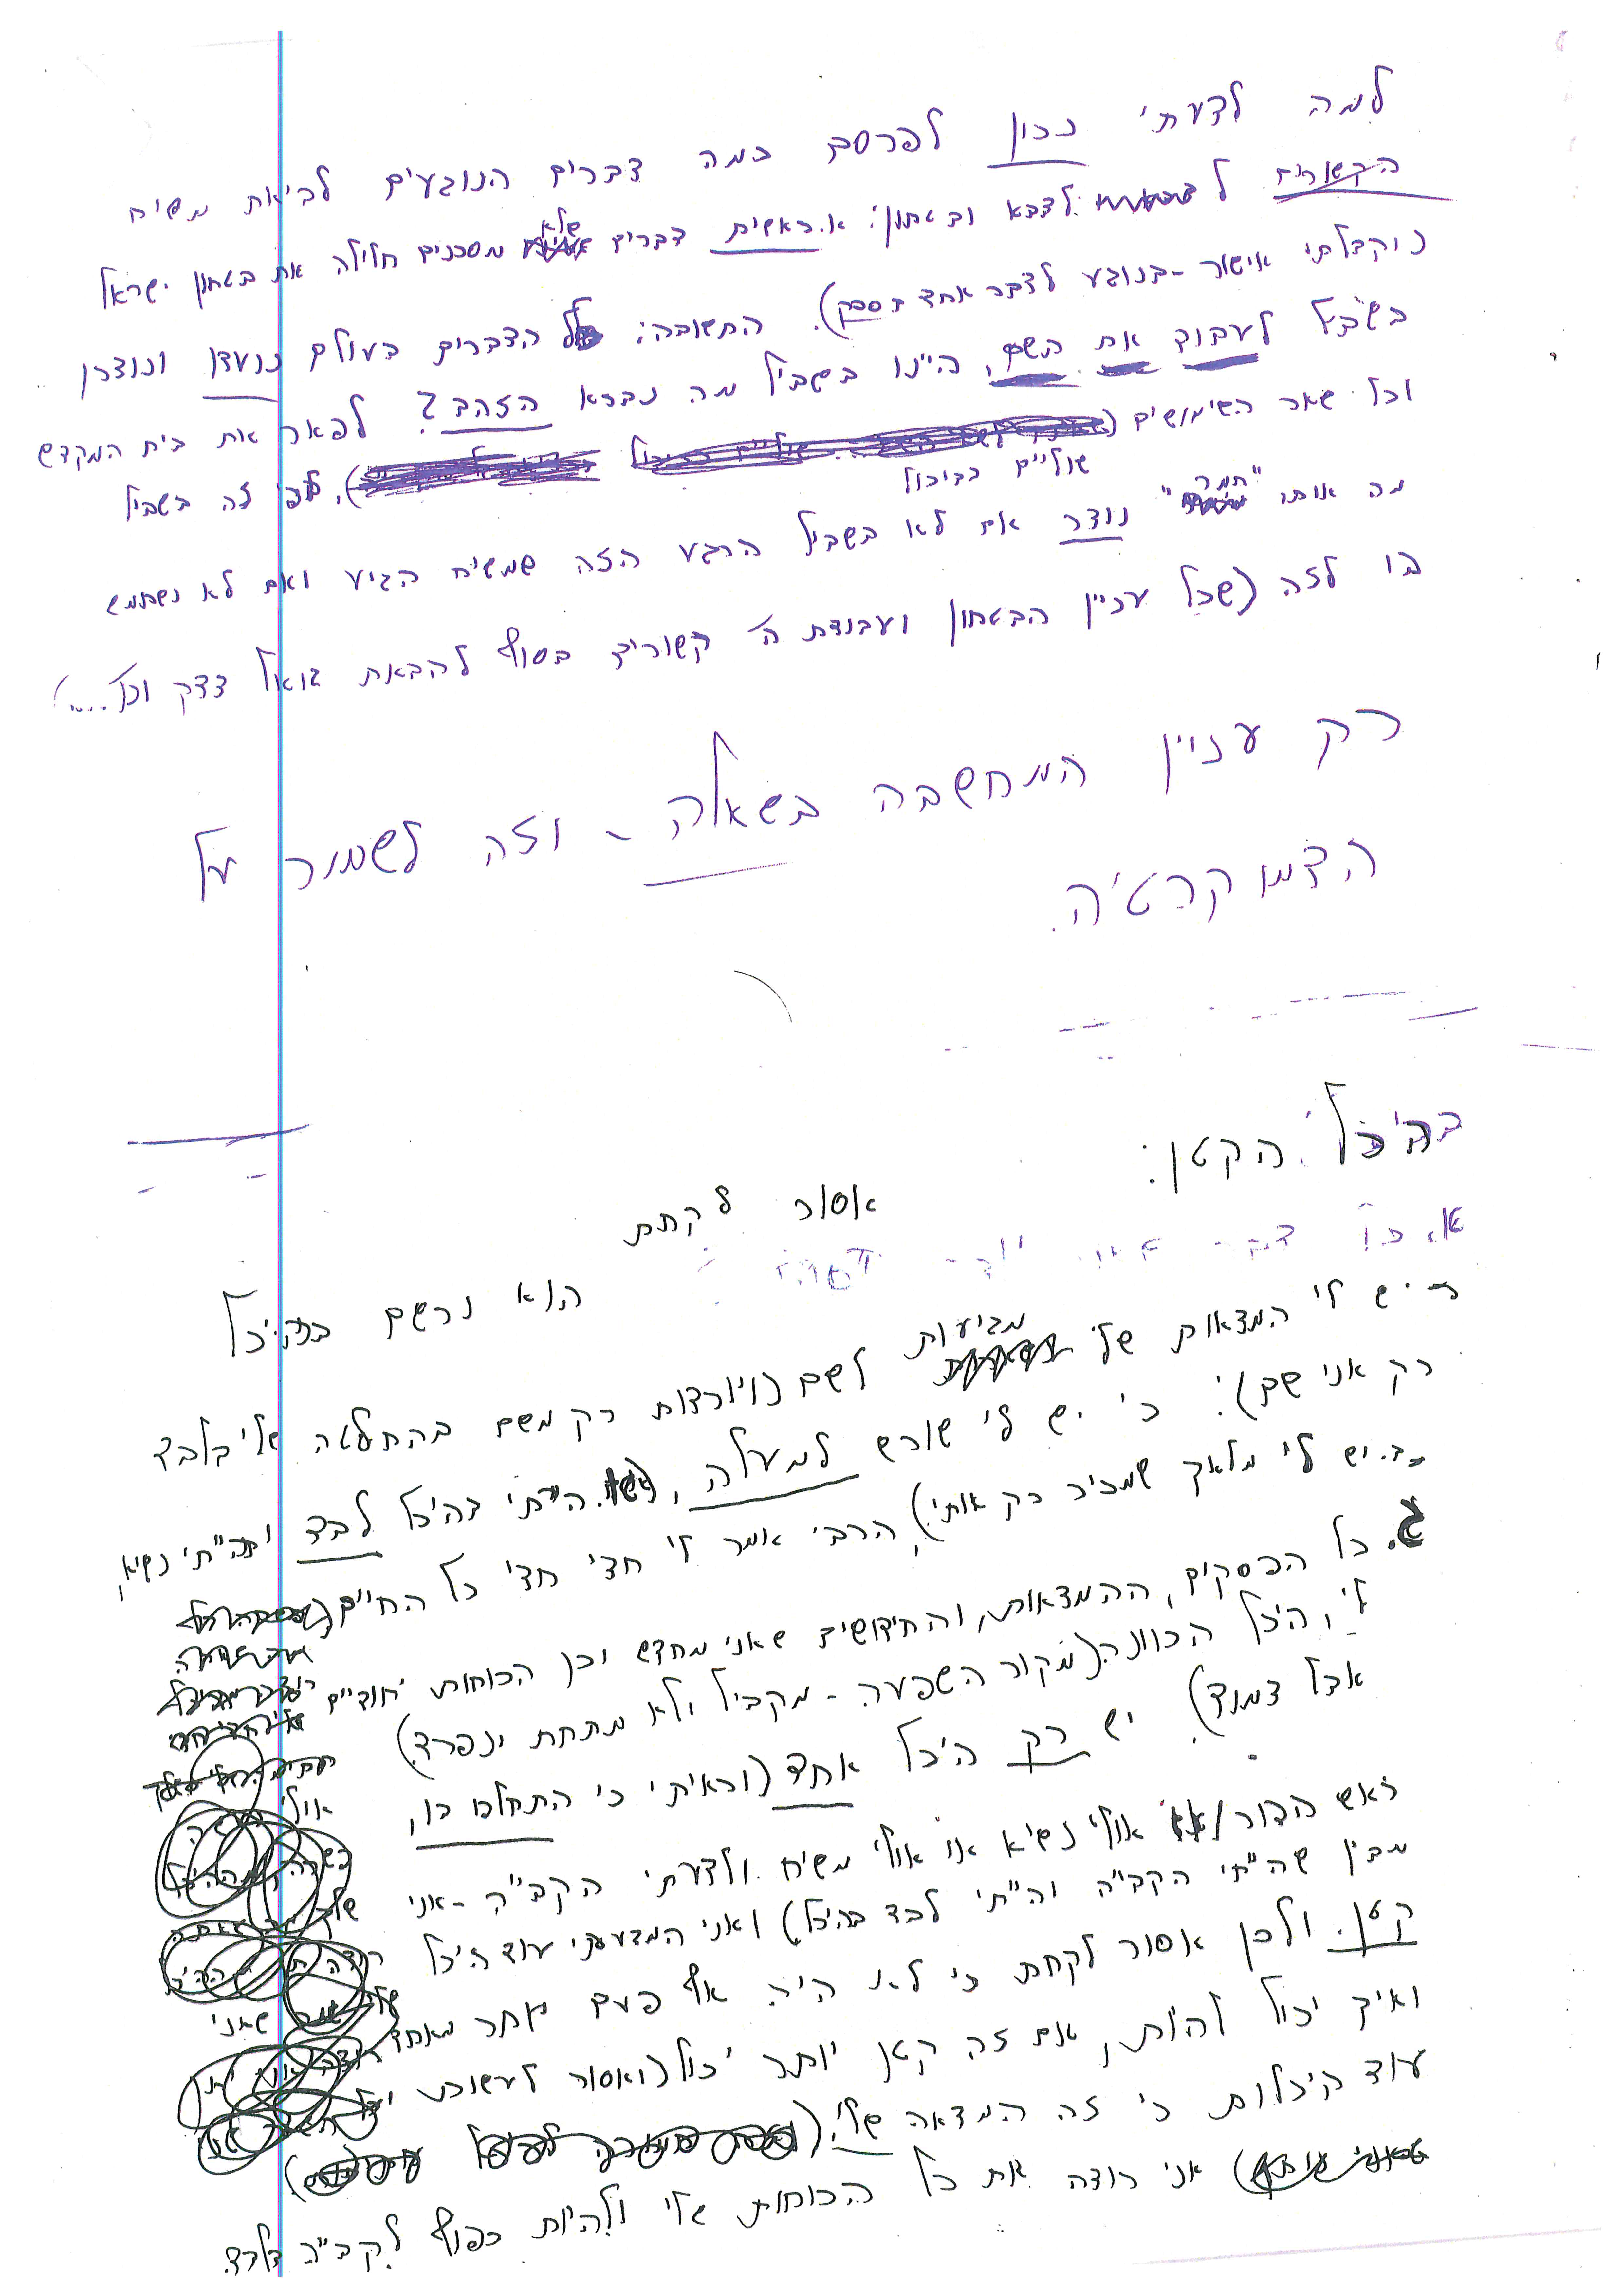 למה לדעתי נכון לפרסם כמה דברים הנוגעים לביאת משיח
הקשורים ל לצבא ובטחון: א. ראשית דברים שלא מסכנים חלילה את בטחון ישראל
(וקבלתי אישור - בנוגע לדבר אחד בספק). התשובה: כל הדברים בעולם נועדו ונוצרו
בשביל לעבוד את השם, היינו בשביל מה נברא הזהב? לפאר את בית המקדש
וכל שאר השימושים (שוליים כביכול), לפי זה בשביל
מה אותו "חמר" נוצר אם לא בשביל הרגע הזה שמשיח הגיע ואם לא נשתמש
בו לזה (שכל עניין הבטחון ועבודת ה' קשורים בסוף להבאת גואל צדק וכו'....)
רק עניין המחשבה בשאלה - וזה לשמור על
הדמוקרטיה.
בהיכל הקטן:
אסור לקחת
א. כל דבר
הוא נרשם בהיכל
יש לי המצאות שלי מגיעות לשם (ויורדות רק משם בהחלטה שלי בלבד
רק אני שם): כי יש לי שורש למעלה, הייתי בהיכל לבד והייתי נשיא,
ב. יש לי מלאך שמכיר רק אותי), הרבי אמר לי חצי חצי כל החיים
ג. כל הפסקים, ההמצאות, והחידושים שאני מחדש וכן הכוחות יחודיים
לי, היכל הכוונה (מקור השפעה - מקביל ולא מתחת ינפרד)
אבל צמוד) יש רק היכל אחד (וראיתי כי התחלפו בו,
אולי
ראש הדור / אולי נשיא או אולי משיח. ולדעתי הקב"ה - אני
מבין שהייתי הקב"ה והייתי לבד בהיכל) ואני המצעתי עוד היכל
קטן. ולכן אסור לקחת כי לא היה אף פעם יותר מאחד
שאני
ואיך יכול להיות, אם זה קטן יותר יכול (ואסור לעשות
עוד היכלות כי זה המצאה שלי!
אני רוצה את כל הכוחות שלי ולהיות כפוף לקב"ה בלבד.